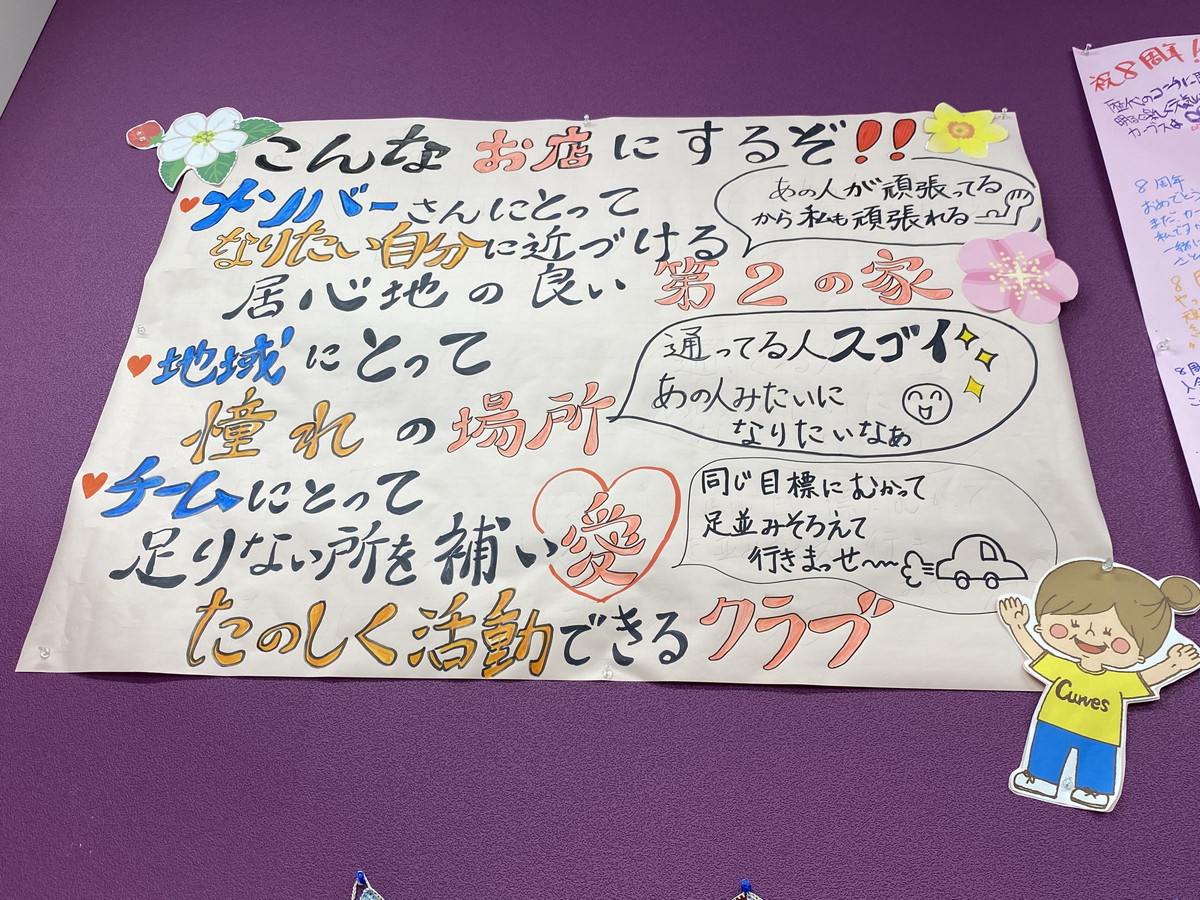 こんなお店にするぞ!!
メンバーさんにとって
なりたい自分に近づける
居心地の良い第2の家
あの人が頑張ってる
から私も頑張れる
地域にとって
憧れの場所
通ってる人スゴイ
あの人みたいに
なりたいなぁ
チームにとって
足りない所を補い愛
たのしく活動できるクラブ
同じ目標にむかって
足並みそろえて
行きまっせ〜
Curves
祝8周年
8周年
おめでとう